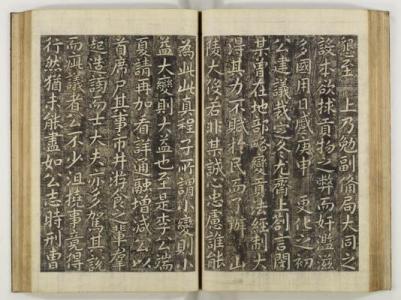 懇至 上乃勉副備局大同之
設本欲捄貢物之弊而奸濫滋
多國用日蹙庚申 更化之初
公建議裁之冬尤齋上劄言閔
某曾在地部略變貢法經制大
得其力不賦於民而了辦 山
陵大役若非某誠心忠慮誰能
為此此真程子所謂小變則小
益大變則大益也至是李公端
夏請再加看詳通融增減公以
首席尸其事市井游食之輩羣
起造謗而士大夫亦多駕其說
而興議者公不少沮撓事竟得
行然猶未能盡如公志時刑曹